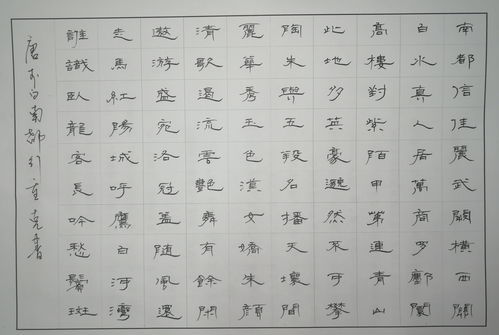 南都信佳麗武闕橫西關
白水真人居萬商罗鄽闤
高樓對紫陌甲第連青山
此地多英豪邈然不可攀
陶朱與五羖名播天壤間
麗華秀玉色漢女嬌朱顏
清歌遏流雲艷舞有餘閑
遨游盛宛洛冠蓋随風還
走馬紅陽城呼鷹白河灣
誰識臥龍客長吟愁鬢斑
唐李白南都行重克書